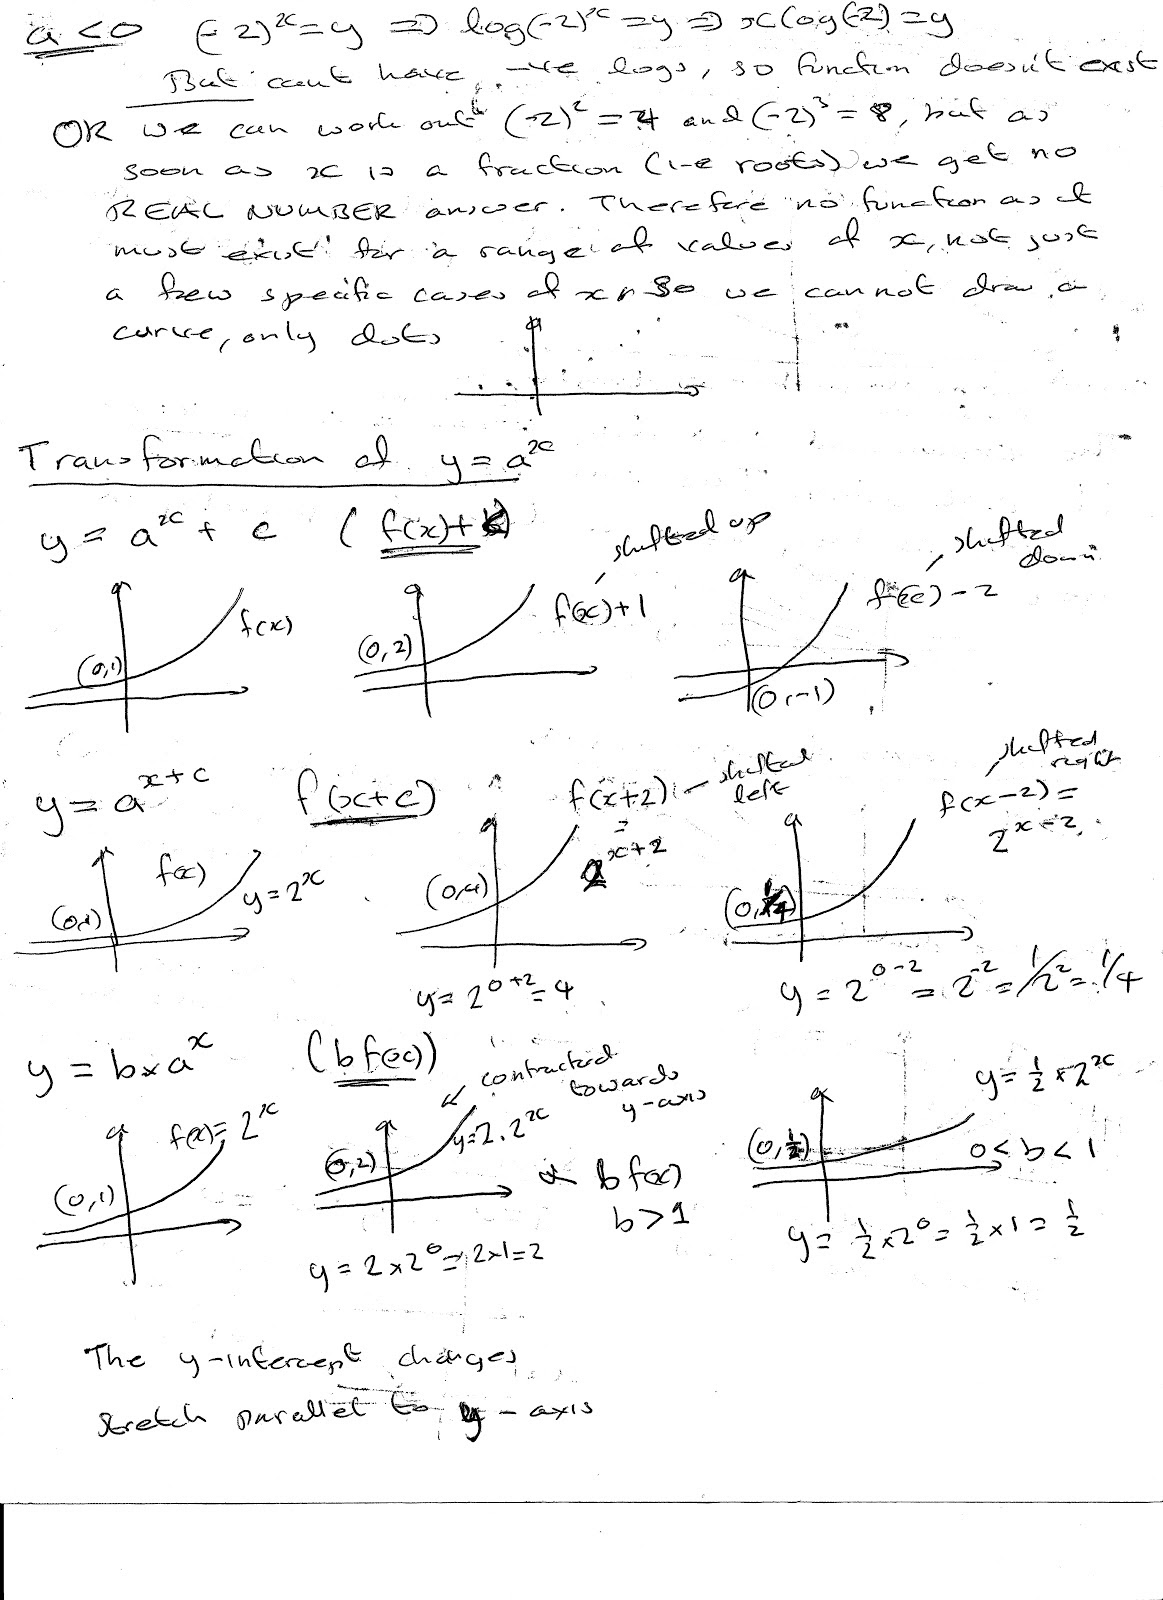 a<0 (-2)^x = y ⇒ log(-2)^x = y ⇒ x log(-2) = y
But cant have -ve logs, so function doesn't exist
OR we can work out (-2)² = 4 and (-2)³ = 8, but as
soon as x is a fraction (i-e roots) we get no
REAL NUMBER answer. Therefore no function as it
must exist for a range of values of x, not just
a few specific cases of x. So we cannot draw a
curve, only dots
Transformation of y = a^x
y = a^x + c (f(x)+k)
shifted up
shifted down
f(x)
f(x)+1
f(x)-2
(0,1)
(0,2)
(0,-1)
y = a^(x+c) f(x+c)
f(x+2) - shifted left
= 2^(x+2)
shifted right
f(x-2) =
2^(x-2)
f(x)
y = 2^x
(0,1)
(0,4)
(0,1/4)
y = 2^(0+2) = 4
y = 2^(0-2) = 2^-2 = 1/2² = 1/4
y = b×a^x (bf(x))
contracted towards y-axis
f(x) = 2^x
y = 2.2^x
y = 1/2 × 2^x
(0,1)
(0,2)
(0,1/2)
bf(x)
b>1
0<b<1
y = 2×2^0 = 2×1=2
y = 1/2 × 2^0 = 1/2 × 1 = 1/2
The y-intercept changes
stretch parallel to y-axis